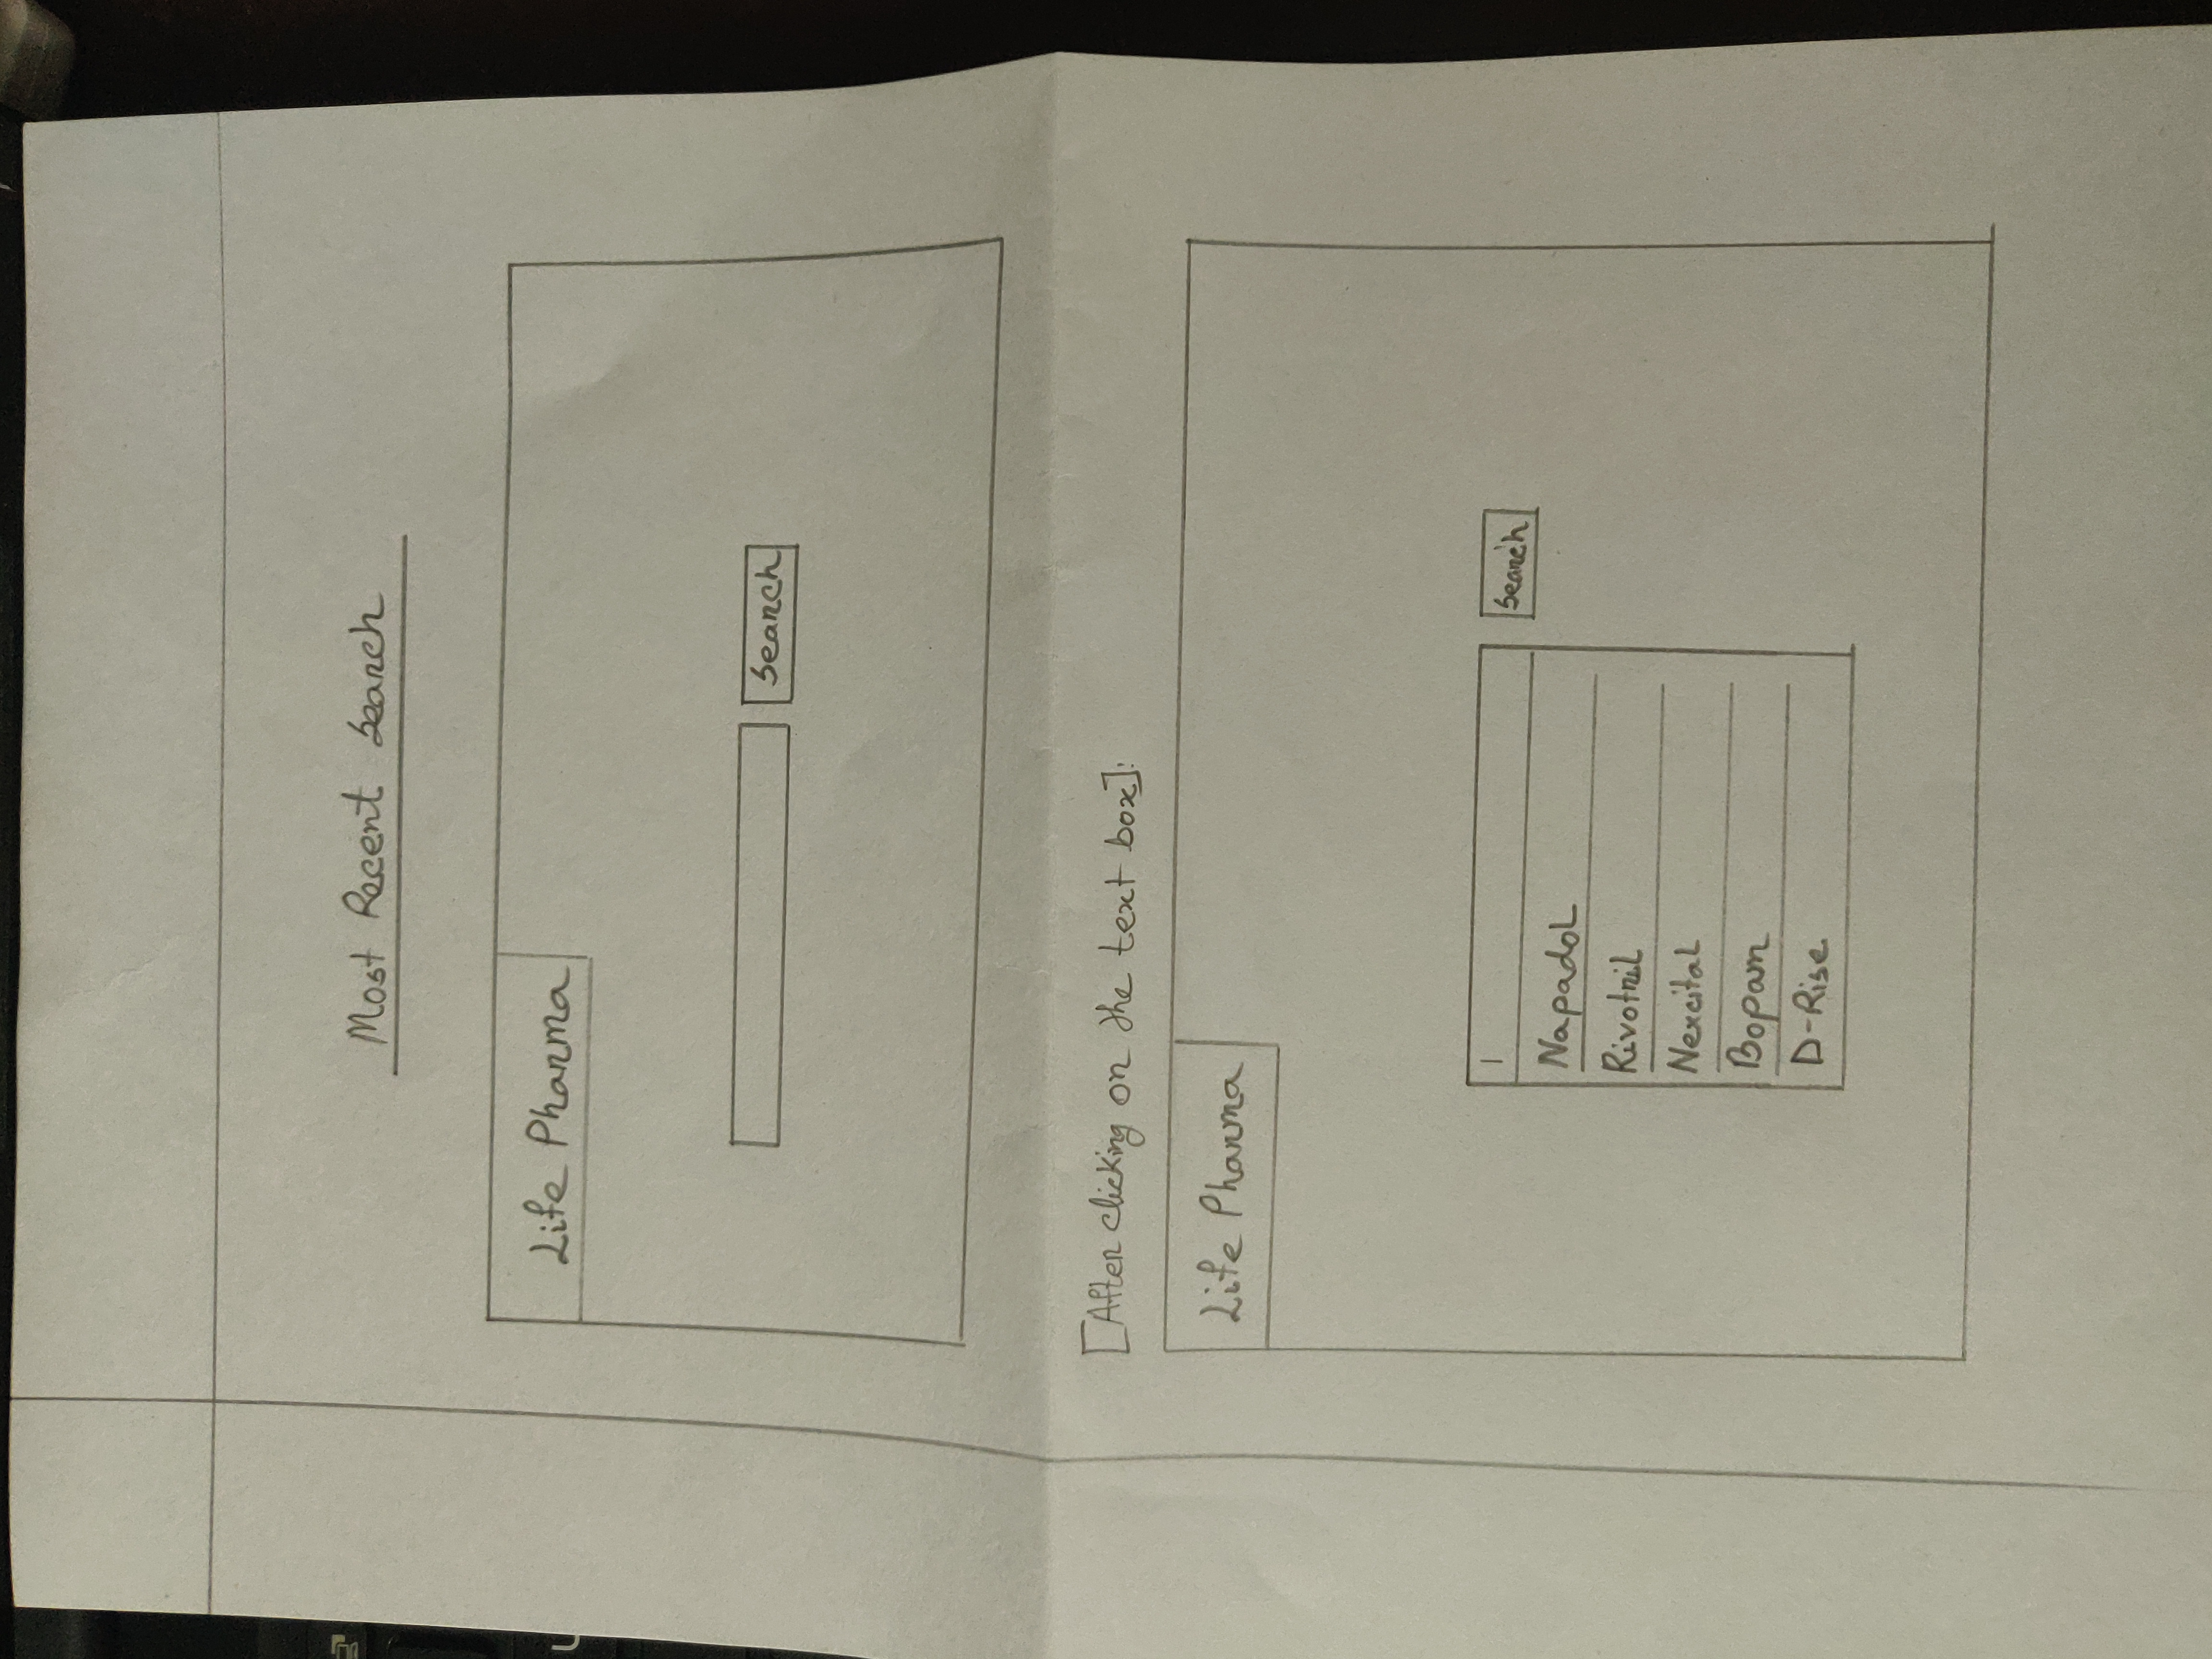 Most Recent Search
Life Pharma
Search
[After clicking on the text box]:
Life Pharma
Search
Napadol
Rivotril
Nexcital
Bopam
D-Rise